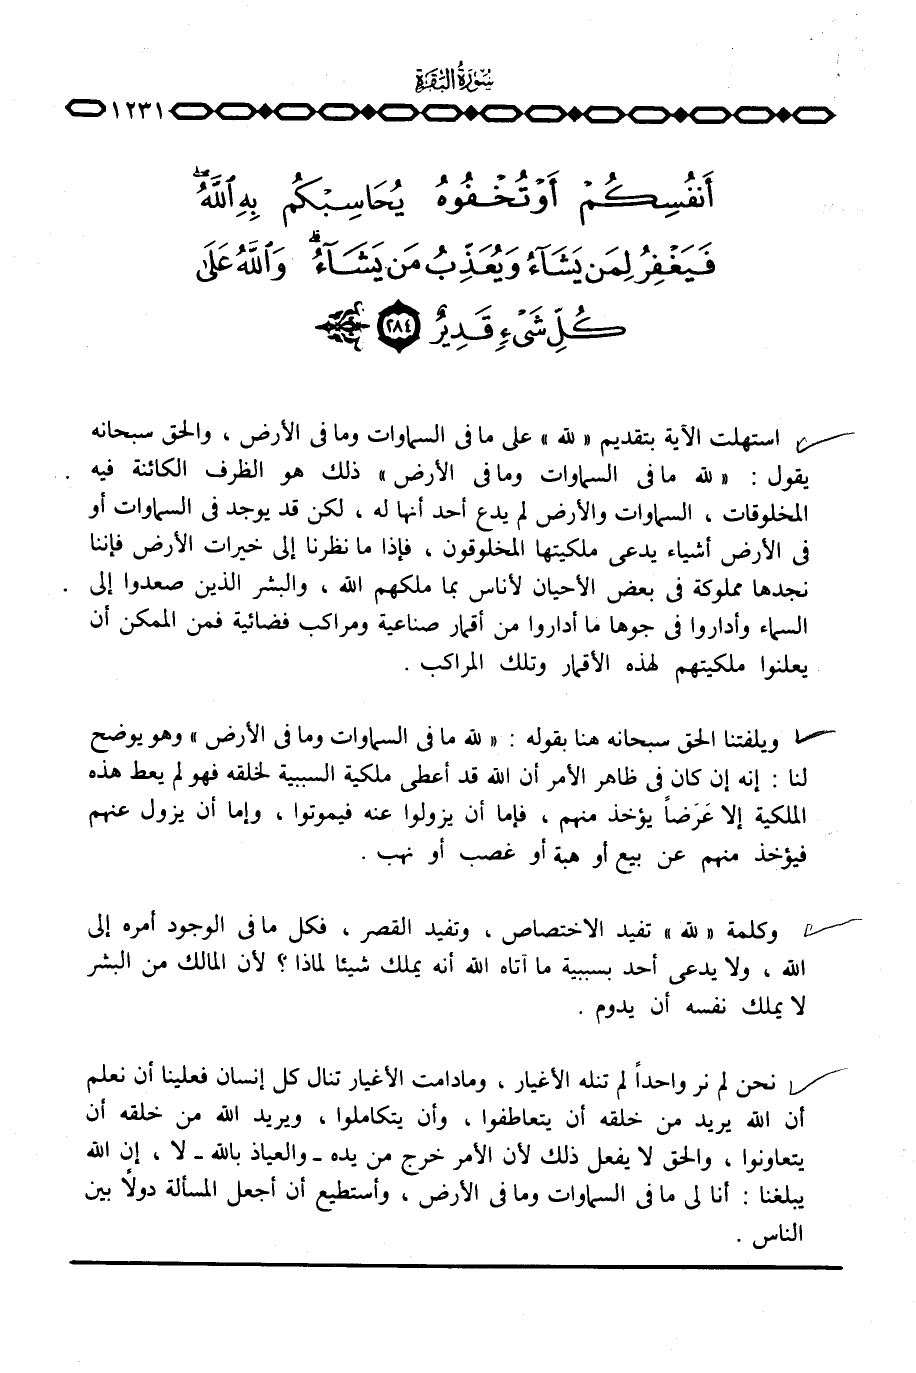 سُورَةُ البَقَرَةِ
١٢٣١
أَنفُسِكُمْ أَوْ تُخْفُوهُ يُحَاسِبْكُم بِهِ ٱللَّهُ ۖ
فَيَغْفِرُ لِمَن يَشَآءُ وَيُعَذِّبُ مَن يَشَآءُ ۗ وَٱللَّهُ عَلَىٰ
كُلِّ شَىْءٍ قَدِيرٌ ٢٨٤
استهلت الآية بتقديم « لله » على ما فى السماوات وما فى الأرض ، والحق سبحانه
يقول : « لله ما فى السماوات وما فى الأرض » ذلك هو الظرف الكائنة فيه
المخلوقات ، السماوات والأرض لم يدع أحد أنها له ، لكن قد يوجد فى السماوات أو
فى الأرض أشياء يدعى ملكيتها المخلوقون ، فإذا ما نظرنا إلى خيرات الأرض فإننا
نجدها مملوكة فى بعض الأحيان لأناس بما ملكهم الله ، والبشر الذين صعدوا إلى
السماء وأداروا فى جوها ما أداروا من أقمار صناعية ومراكب فضائية فمن الممكن أن
يعلنوا ملكيتهم لهذه الأقمار وتلك المراكب .
ويلفتنا الحق سبحانه هنا بقوله : « لله ما فى السماوات وما فى الأرض » وهو يوضح
لنا : إنه إن كان فى ظاهر الأمر أن الله قد أعطى ملكية السببية لخلقه فهو لم يعط هذه
الملكية إلا عَرَضاً يؤخذ منهم ، فإما أن يزولوا عنه فيموتوا ، وإما أن يزول عنهم
فيؤخذ منهم عن بيع أو هبة أو غصب أو نهب .
وكلمة « لله » تفيد الاختصاص ، وتفيد القصر ، فكل ما فى الوجود أمره إلى
الله ، ولا يدعى أحد بسببية ما آتاه الله أنه يملك شيئا لماذا ؟ لأن المالك من البشر
لا يملك نفسه أن يدوم .
نحن لم نر واحداً لم تنله الأغيار ، ومادامت الأغيار تنال كل إنسان فعلينا أن نعلم
أن الله يريد من خلقه أن يتعاطفوا ، وأن يتكاملوا ، ويريد الله من خلقه أن
يتعاونوا ، والحق لا يفعل ذلك لأن الأمر خرج من يده ـ والعياذ بالله ـ لا ، إن الله
يبلغنا : أنا لى ما فى السماوات وما فى الأرض ، وأستطيع أن أجعل المسألة دولاً بين
الناس .